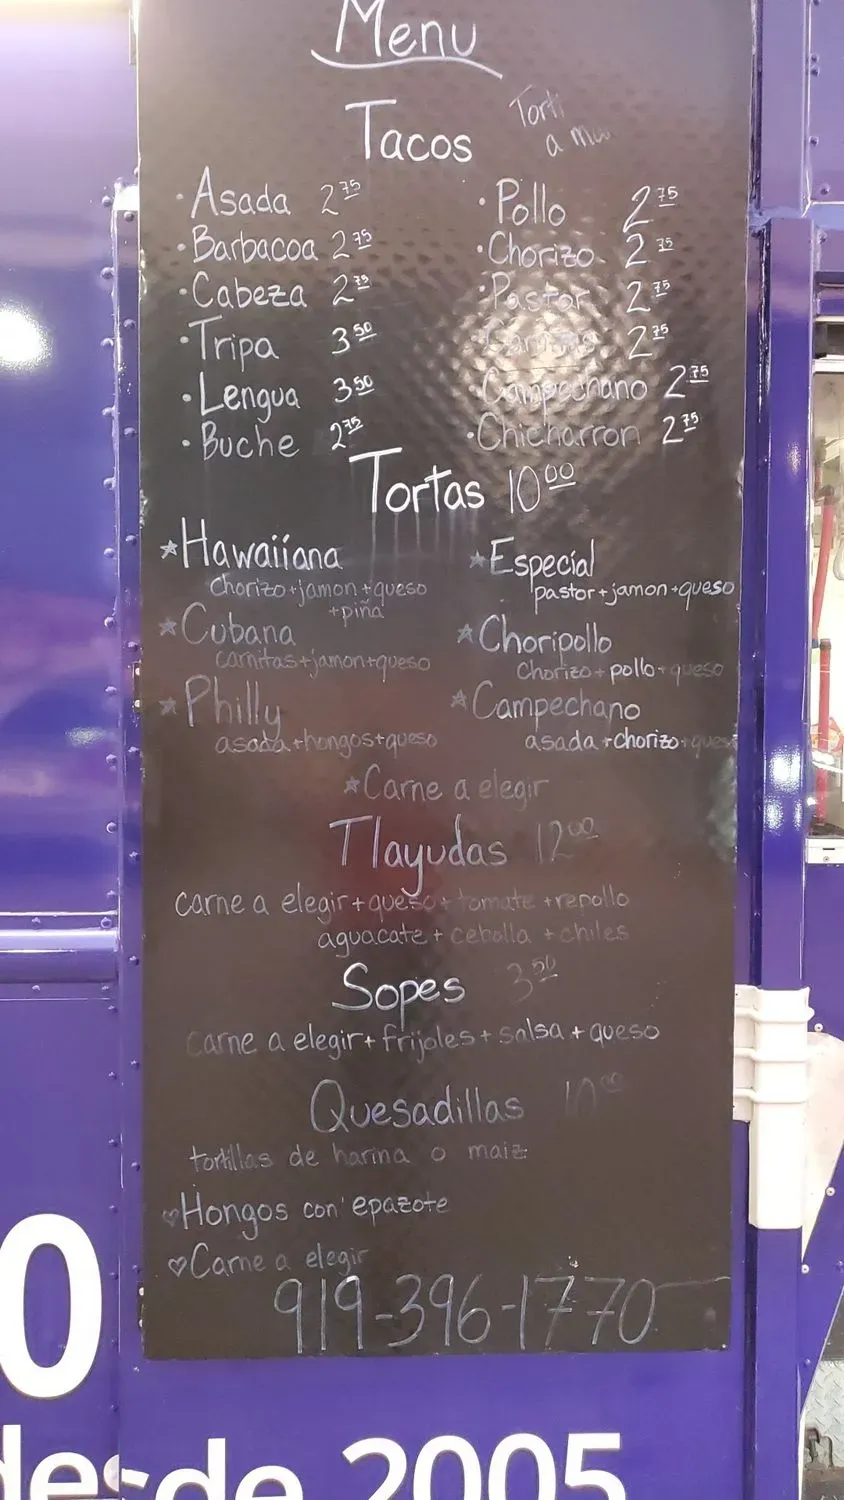 Menu
Tacos
Torti
a ma
· Asada 2.75
· Barbacoa 2.75
· Cabeza 2.75
· Tripa 3.50
· Lengua 3.50
· Buche 2.75
· Pollo 2.75
· Chorizo 2.75
· Pastor 2.75
· Carnitas 2.75
Campechano 2.75
· Chicharron 2.75
Tortas 10.00
☆ Hawaiiana
chorizo+jamon+queso
+piña
☆ Cubana
carnitas+jamon+queso
☆ Philly
asada+hongos+queso
☆ Especial
pastor+jamon+queso
☆ Choripollo
Chorizo+pollo+queso
☆ Campechano
asada+chorizo+queso
☆ Carne a elegir
Tlayudas 12.00
carne a elegir+queso+tomate+repollo
aguacate+cebolla+chiles
Sopes 3.50
carne a elegir+frijoles+salsa+queso
Quesadillas 10.00
tortillas de harina o maiz
♡ Hongos con epazote
♡ Carne a elegir
919-396-1770
0
desde 2005